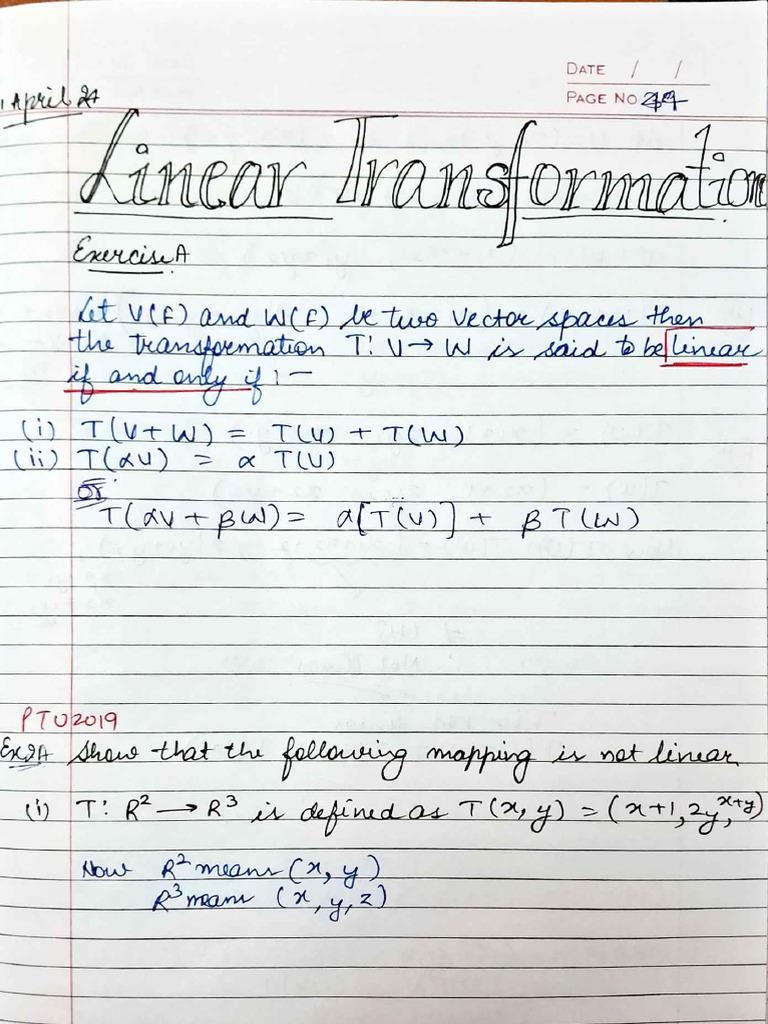 DATE / /
PAGE NO
1 April 24
Linear Transformation
Exercise A
Let V(F) and W(F) be two vector spaces then
the transformation T: V → W is said to be linear
if and only if :-
(i) T(V+W) = T(V) + T(W)
(ii) T(αV) = α T(V)
or
T(αV + βW) = α[T(V)] + β T(W)
PTU 2019
Show that the following mapping is not linear
(i) T: R² → R³ is defined as T(x, y) = (x+1, 2y, x+y)
Now R² means (x, y)
R³ means (x, y, z)